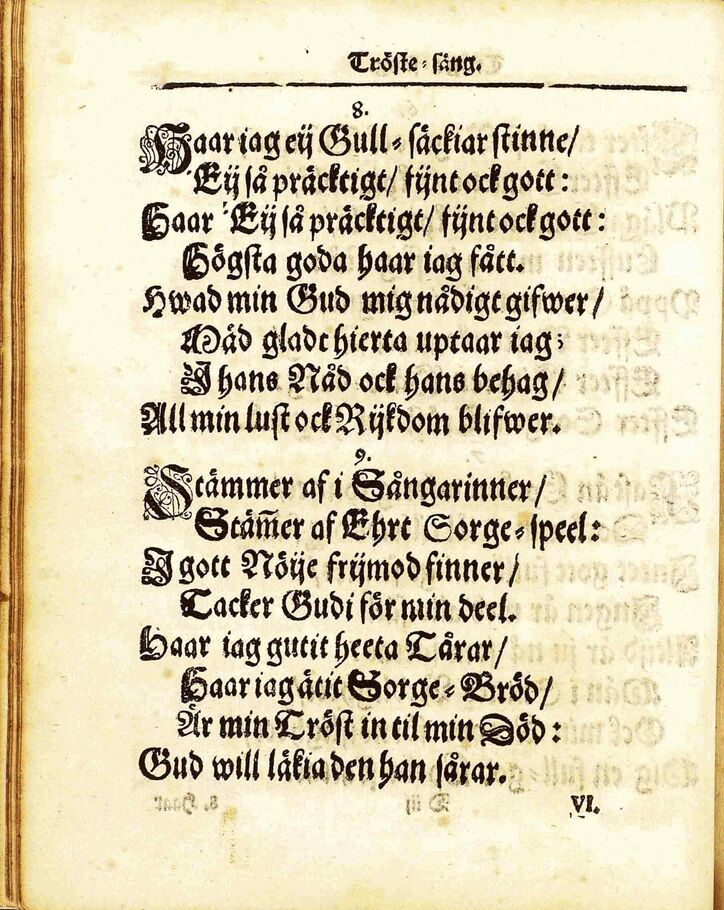 Tröste-sång.
8.
Haar iag eij Gull-säckiar stinne/
Eij så präcktigt/ fijnt ock gott:
Haar Eij så präcktigt/ fijnt ock gott:
Högsta goda haar iag fått.
Hwad min Gud mig nådigt gifwer/
Mäd gladt hierta uptaar iag;
I hans Nåd ock hans behag/
All min lust ock Rijkdom blifwer.
9.
Stämmer af i Sångarinner/
Stäm̅er af Ehrt Sorge-speel:
I gott Nöije frijmod finner/
Tacker Gudi för min deel.
Haar iag gutit heeta Tårar/
Haar iag ätit Sorge-Bröd/
Är min Tröst in til min Död:
Gud will läkia den han sårar.
VI.